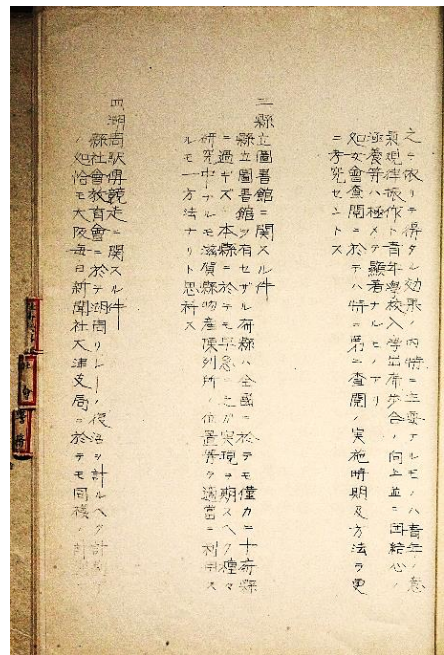 之ニ依リテ得タル効果ノ内特ニ主要ナルモノハ青年ノ意
気現伴振作ト青年学校入学出席歩合ノ向上並ニ団結心ノ
極養等ハ極メテ顕著ナルモノアリ
処女會査閲ニ於テハ特ニ第二査閲ノ実施時期及方法ヲ更
ニ考究セントス
三 縣立圖書館ニ関スル件
縣立圖書館ヲ有セザル府縣ハ全國ニ於テモ僅カニ十府縣
ニ過ギズ本縣ニ於テモ早急ニ之ガ実現ヲ期スベク種々
研究中ナルモ滋賀縣物産陳列所ノ位置等ヲ適當ニ利用ス
ルモ一方法ナリト思料ス
四 湖周駅傳競走ニ関スル件
縣社會教育會ニ於テ湖周リレーノ復活ヲ計ルベク計画
ノ処恰モ大阪毎日新聞社大津支局ニ於テモ同様ノ計